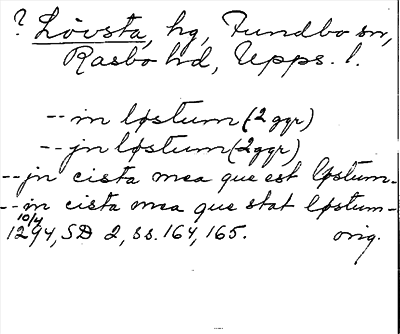 ? Lövsta, hg, Fundbo sn,
Rasbo hd, Upps. l.
-- in løstum (2 ggr)
-- jn løstum (2 ggr)
-- jn cista mea que est løstum --
-- in cista mea que stat løstum --
10/4
1294, SD 2, ss. 164, 165. orig.